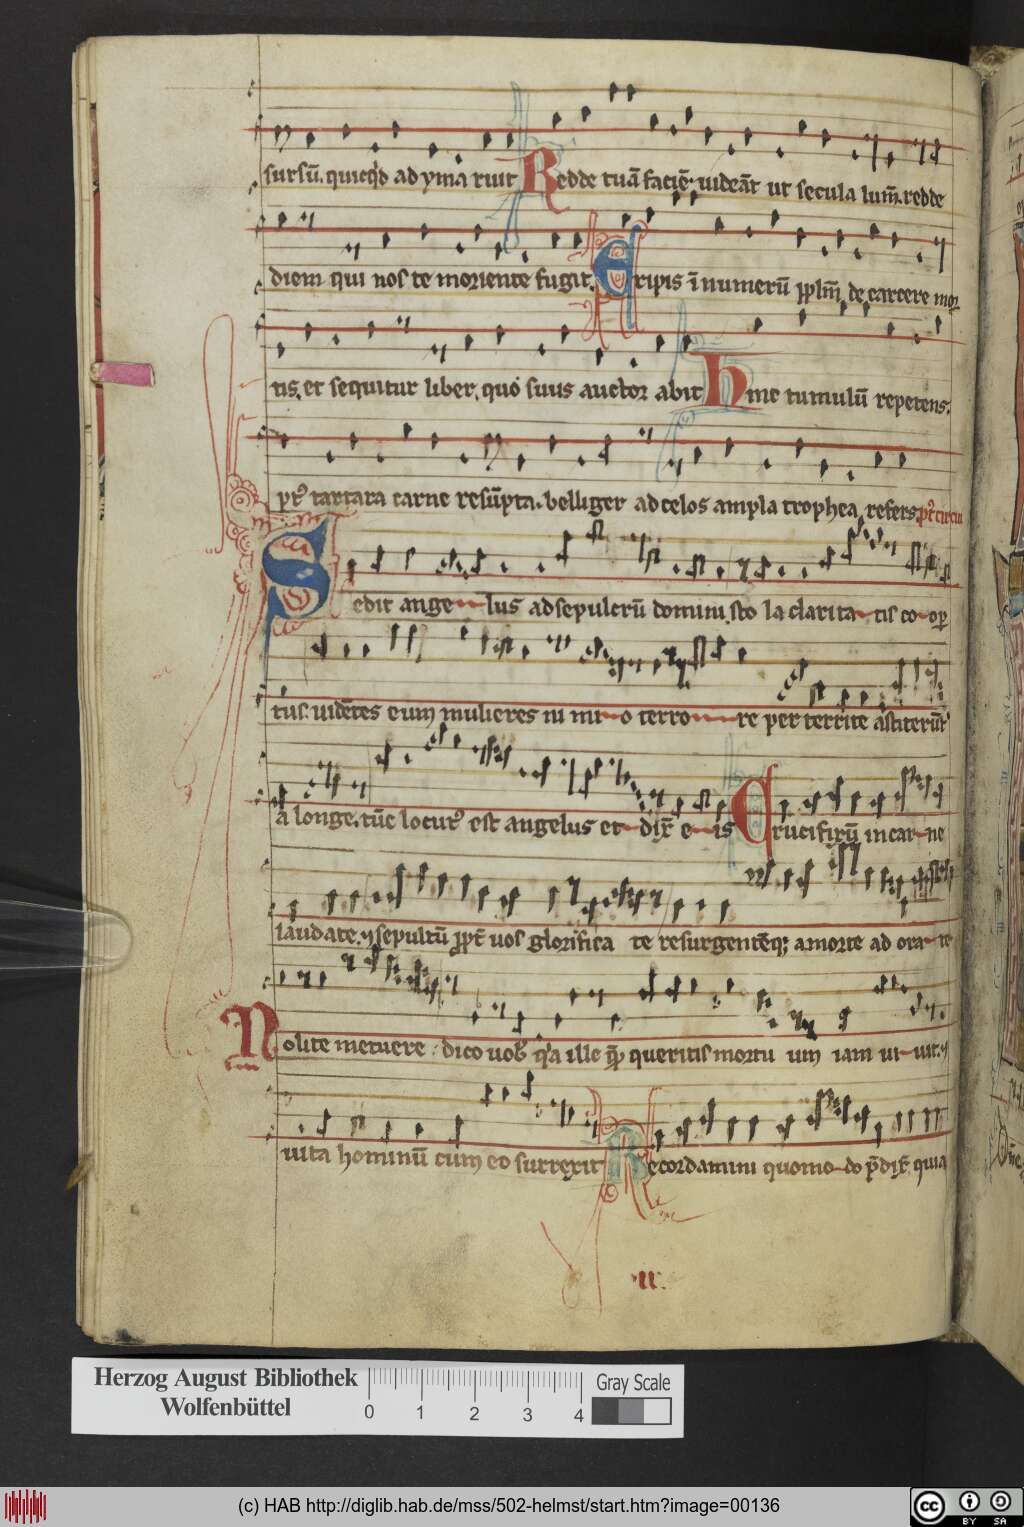 sursū. quicq̇d ad yma ruit Redde tuā faciē. uideāt ut secula lum̄. redde
diem qui nos te moriente fugit. Eripis īnumerū pplm̄ de carcere mor
tis. et sequitur liber. quo suus auctor abit Hinc tumulū repetens.
pt᷒ tartara carne resūpta. belliger ad celos ampla trophea refers
Sedit angelus ad sepulcrū domini. sto la claritatis co op̄
tus. uidētes eum mulieres ni mio terrore per territe astiterūt
a longe. tūc locut᷒ est angelus et dix̄ eis Crucifixū in carne
laudate. ⁊ sepultū ppt̄ uos glorifica te resurgentēq; a morte ad orate
Nolite metuere. dico uob᷒ q̇a ille quē queritis mortu um iam uiuit. ⁊
uita hominū cum eo surrexit Recordamini quomodo p̄dix̄ quia
II.
Herzog August Bibliothek
Wolfenbüttel
0 1 2 3 4
Gray Scale
(c) HAB http://diglib.hab.de/mss/502-helmst/start.htm?image=00136
cc BY SA